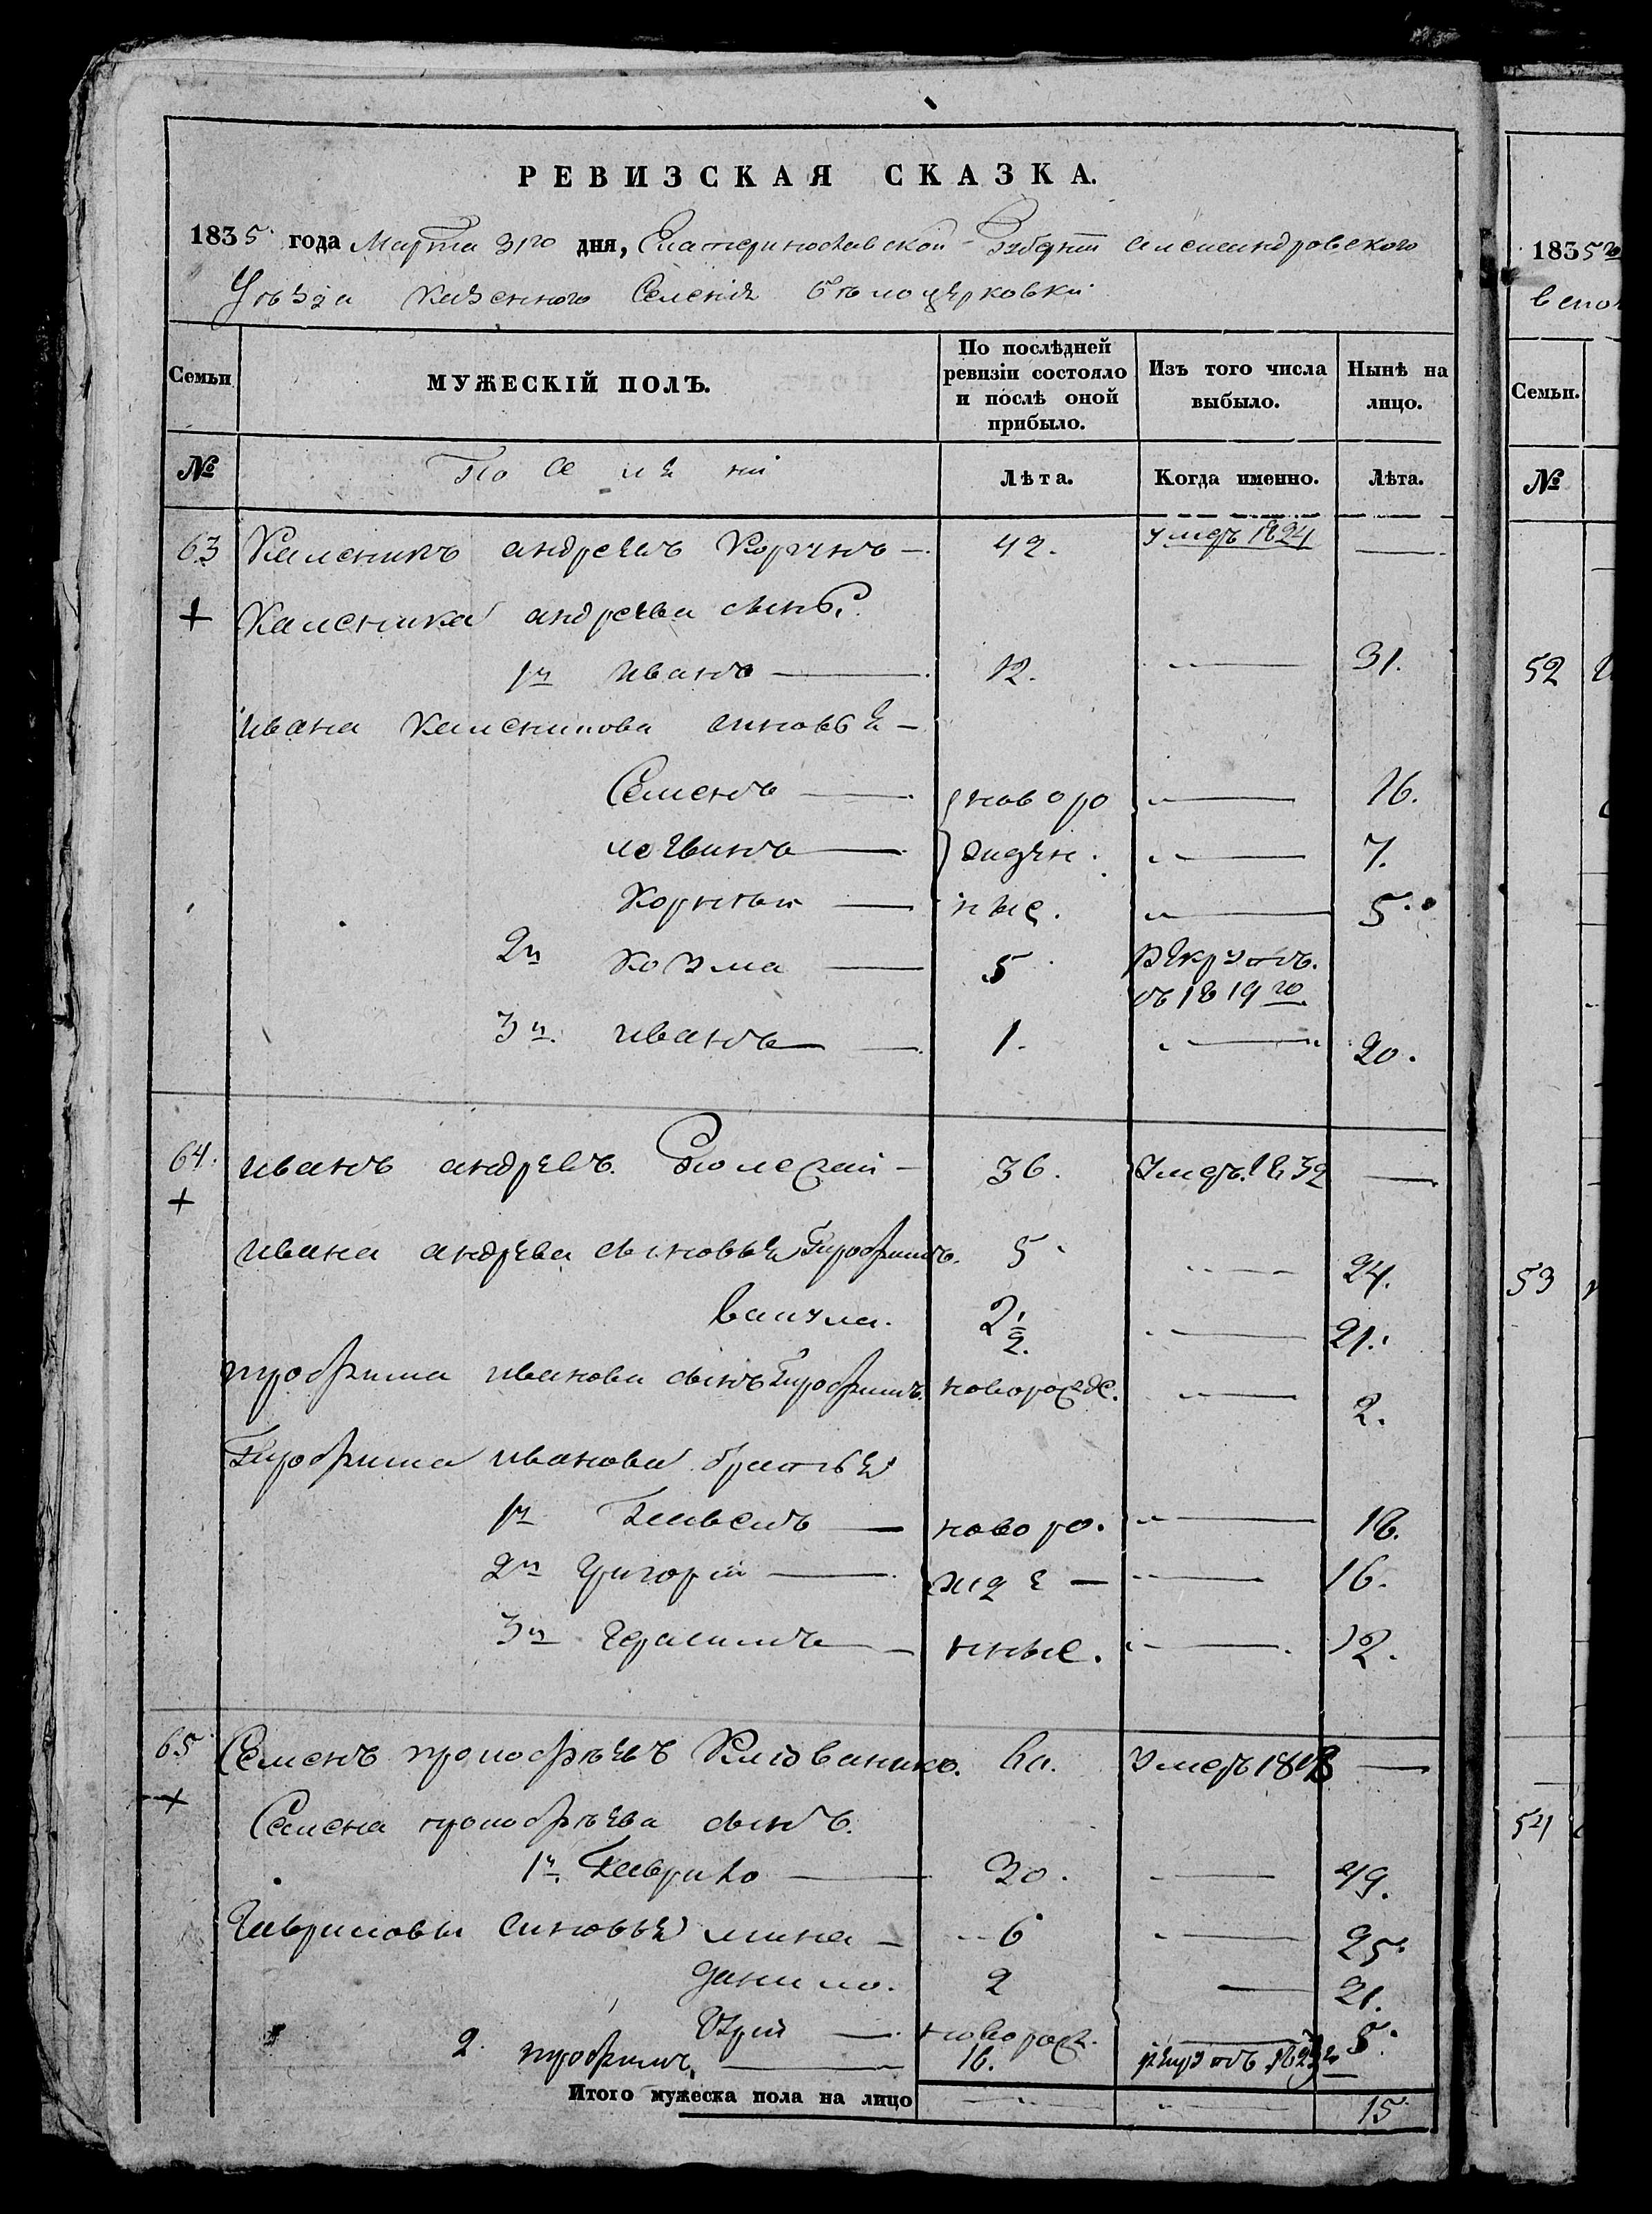 РЕВИЗСКАЯ СКАЗКА.
1835 года Марта 31го дня, Екатеринославской Губерніи Александровского
Уѣзда Казенного Селенія Бѣлоцерковки
Семьи
МУЖЕСКІЙ ПОЛЪ.
По послѣдней ревизіи состояло и послѣ оной прибыло.
Изъ того числа выбыло.
Нынѣ на лицо.
№
Лѣта. Когда именно. Лѣта.
63 Каленикъ андреевъ Коржнъ — 42. умеръ 1824 —
+ Каленика андреева сынъ.
1й иванъ — 12. — 31.
ивана Каленикова синовья —
Семенъ — новоро — 16.
логвинъ — жден. — 7.
Корнѣй — ные. — 5.
2й козма — 5 рекрутъ.
въ 1819го
3й. иванъ — 1. — 20.
64. иванъ андреевъ — 36. Умеръ. 1832 —
+
ивана андрева сыновья Трофимъ. 5. — 24.
вакула. 2 1/2. — 21.
трофима иванова сынъ Трофимъ. новорожде. — 2.
Трофима иванова братья
1й Павелъ — новоро. — 18.
2й григорій — жде — — 16.
3й герасимъ — нные. — 12.
65 Семенъ прокофѣевъ — Умеръ 1818 —
+
Семена прокофѣева сынъ.
1й. Гаврило — 30. — 49.
Гавриловы синовья мина — 6 — 25.
данило. 2 — 21.
Юрій — новорож. — 5.
2. трофимъ, — 16. рекрутъ
Итого мужеска пола на лицо — — 15
1835го
Семьи.
№
52
53
54